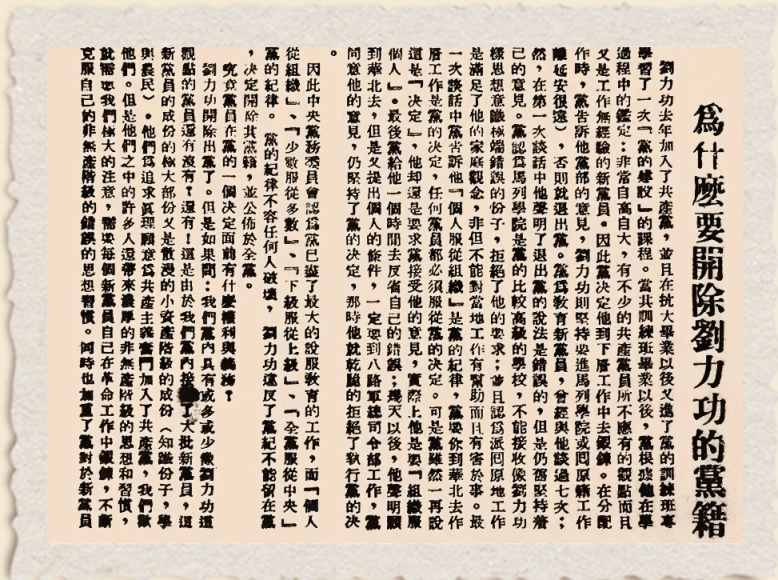 為什麼要開除劉力功的黨籍
劉力功去年加入了共產黨，並且在抗大畢業以後又進了黨的訓練班專
學習了一次『黨的建設』的課程。當其訓練班畢業以後，黨根據他在學
過程中的鑑定：非常自高自大，有不少的共產黨員所不應有的觀點而且
又是工作無經驗的新黨員。因此黨決定他到下層工作中去鍛鍊。在分配
作時，黨告訴他黨部的意見，劉力功則堅持要進馬列學院或囘原籍工作
離延安很遠），否則就退出黨。黨爲教育新黨員，曾經與他談過七次；
然，在第一次談話中他聲明了退出黨的說法是錯誤的，但是仍舊堅持着
己的意見。黨認爲馬列學院是黨的比較高級的學校，不能接收像劉力功
樣思想意識極端錯誤的份子，拒絕了他的要求；並且認爲派囘原地工作
是滿足了他的家庭觀念，非但不能對當地工作有幫助而且有害於事。最
一次談話中黨告訴他『個人服從組織』是黨的紀律，黨要你到華北去作
層工作是黨的決定，任何黨員都必須服從黨的決定。可是黨雖然一再說
這是『決定』，他却還是要求黨接受他的意見，實際上他是要『組織服
個人』。最後黨給他一個時間去反省自己的錯誤；幾天以後，他聲明願
到華北去，但是又提出個人的條件，一定要到八路軍總司令部工作，黨
同意他的意見，仍堅持了黨的決定，那時他就乾脆的拒絕了執行黨的決
。
因此中央黨務委員會認爲黨已盡了最大的說服教育的工作，而『個人
從組織』、『少數服從多數』、『下級服從上級』、『全黨服從中央』
黨的紀律。黨的紀律不容任何人破壞，劉力功違反了黨紀不能留在黨
，決定開除其黨籍，並公佈於全黨。
究竟黨員在黨的一個決定面前有什麼權利與義務？
劉力功開除出黨了。但是如果問：我們黨內具有或多或少像劉力功這
觀點的黨員還有沒有？還有！這是由於我們黨內接了大批新黨員，這
新黨員的成份的極大部份又是散漫的小資產階級的成份（知識份子，學
與農民）。他們爲追求眞理願意爲共產主義奮鬥加入了共產黨，我們歡
他們。但是他們之中的許多人還帶來濃厚的非無產階級的思想和習慣，
就需要我們極大的注意，需要每個新黨員自己在革命工作中鍛鍊，不斷
克服自己的非無產階級的錯誤的思想習慣。同時也加重了黨對於新黨員